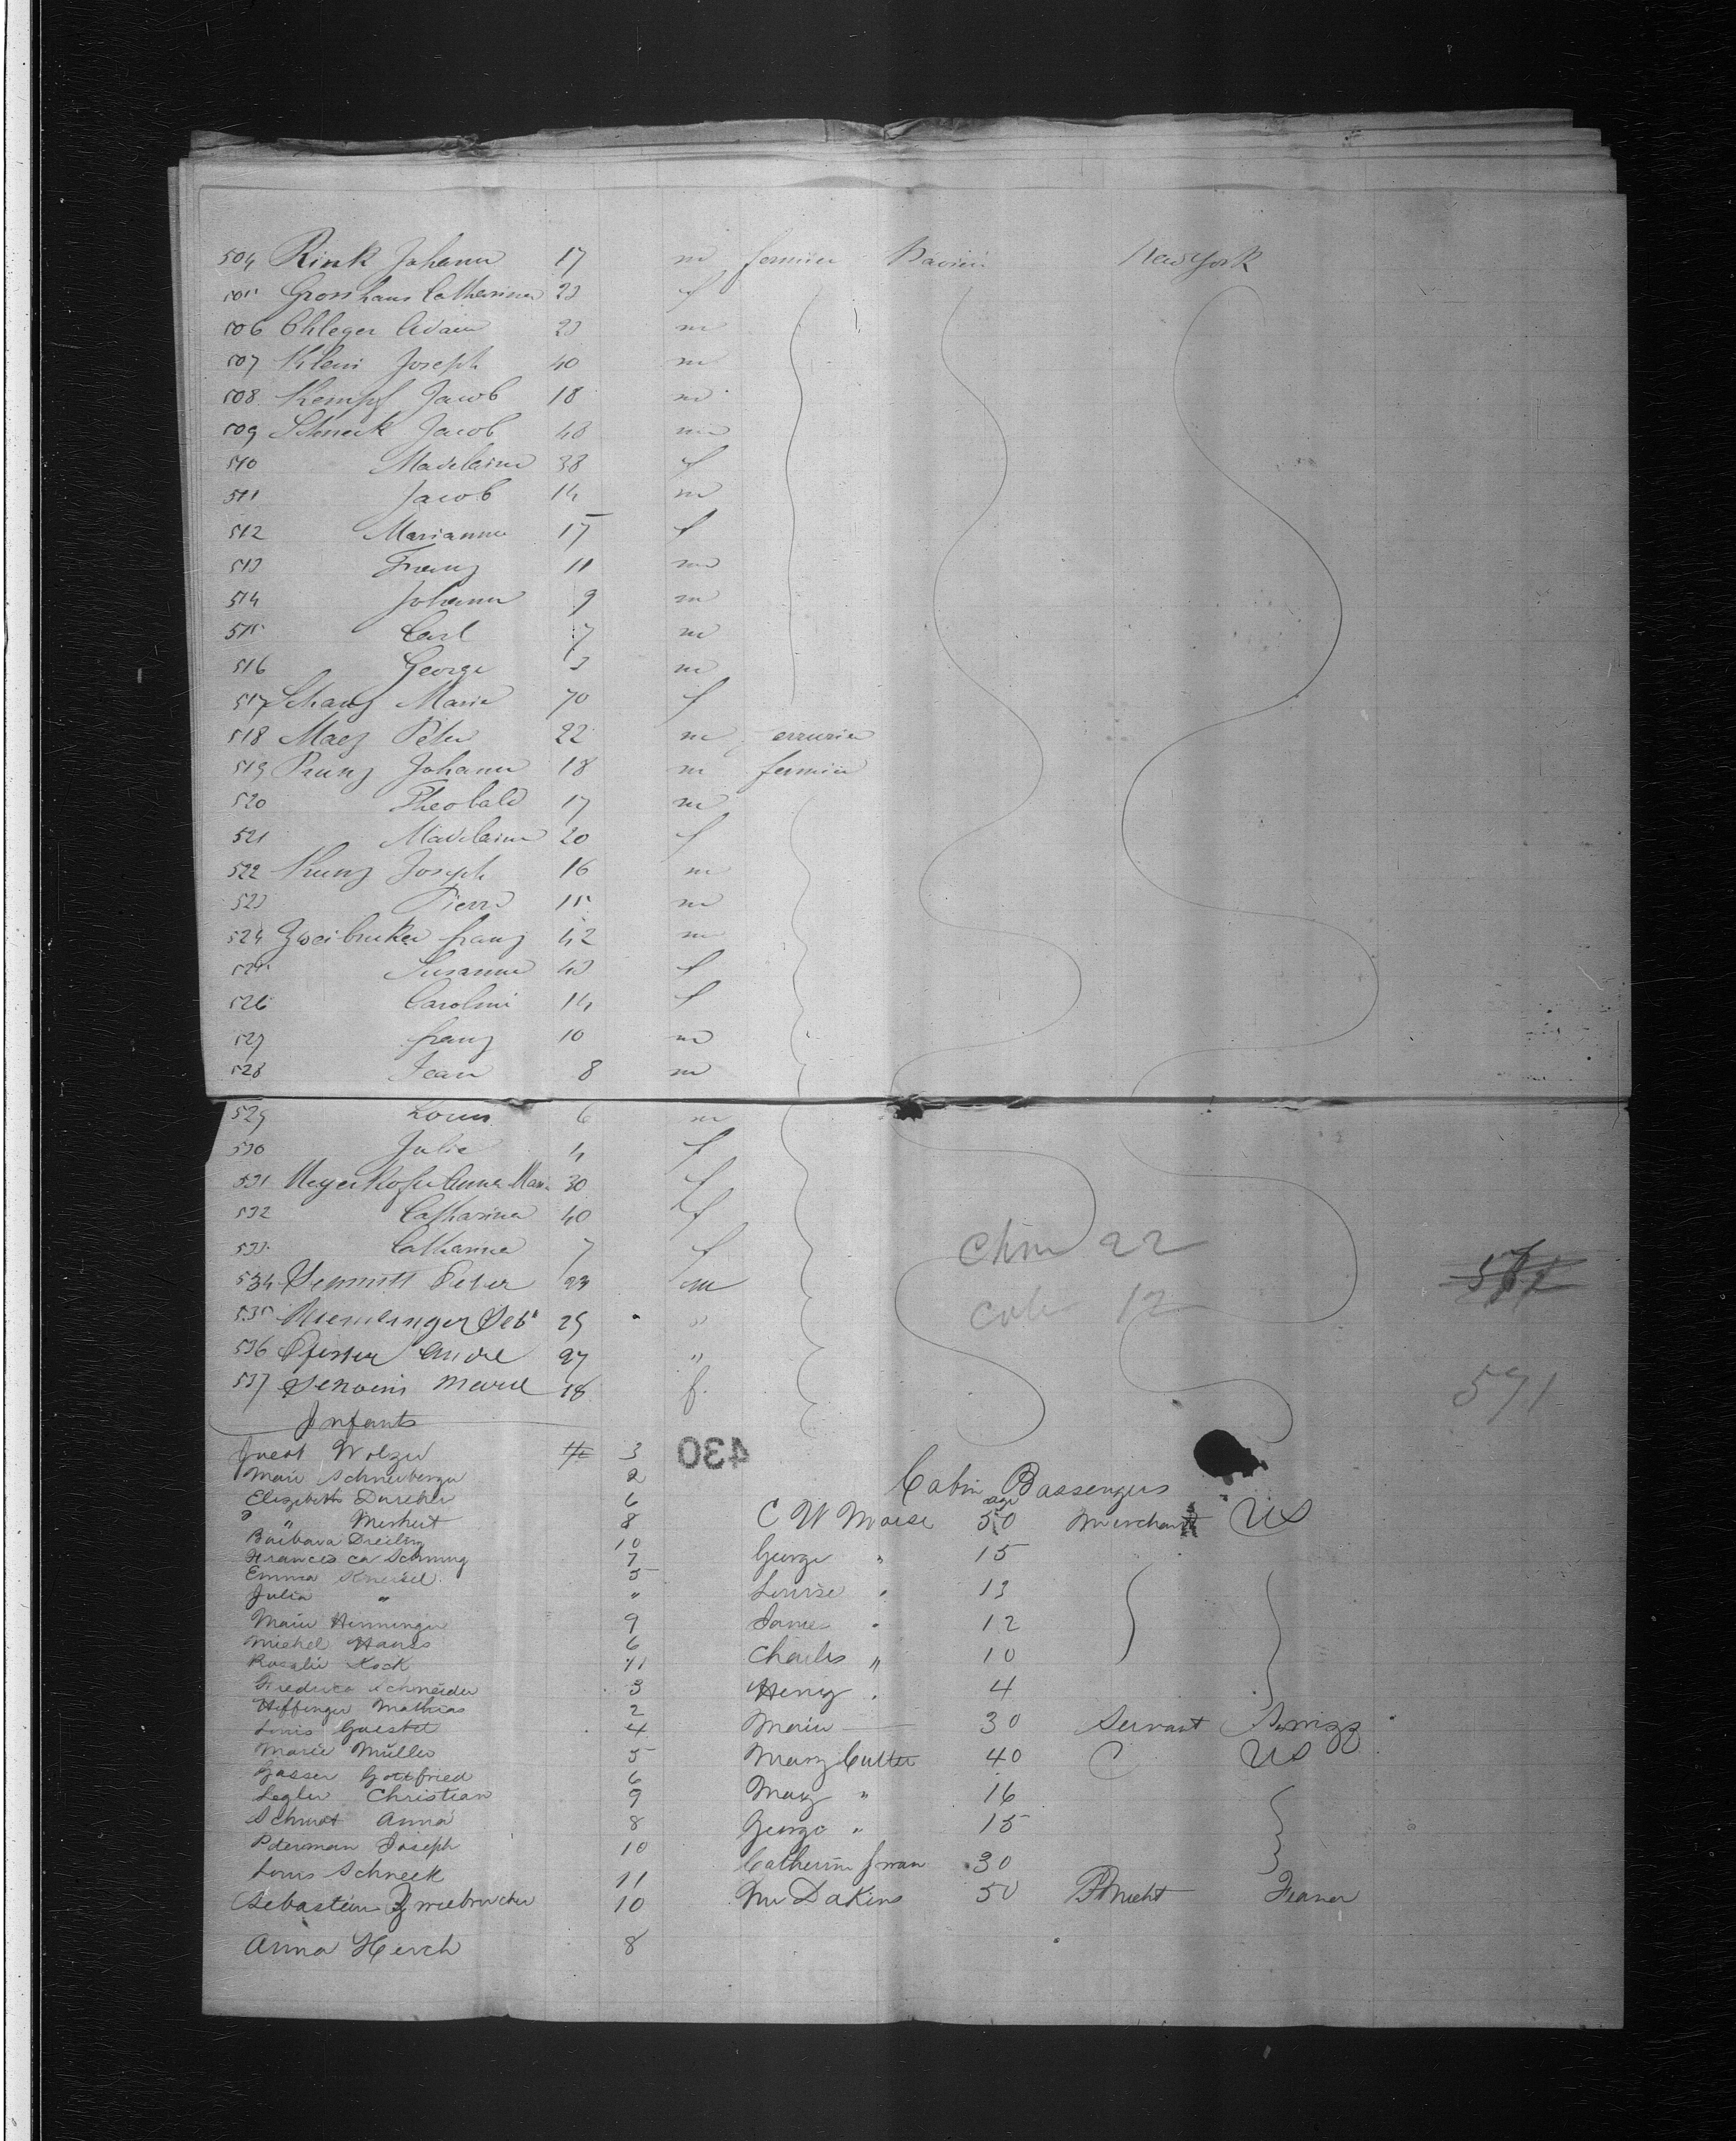 504 Rink Johann 17 m fermier Bavière New York
505 Grosshans Catharina 23 f
506 Chleger Adam 23 m
507 Klein Joseph 40 m
508 Kempf Jacob 18 m
509 Schneck Jacob 43 m
510 Madelaine 38 f
511 Jacob 14 m
512 Marianne 17 f
513 Franz 11 m
514 Johann 9 m
515 Carl 7 m
516 George 3 m
517 Schanz Marie 70 f
518 Maez Peter 22 m
519 Johann 18 m fermier
520 Theobald 17 m
521 Madelaine 20 f
522 Kunz Joseph 16 m
523 Pierre 15 m
524 Zweibruker franz 42 m
525 Susanne 43 f
526 Caroline 14 f
527 franz 10 m
528 Jean 8 m
529 Louis 6 m
530 Julie 4 f
531 Meyerhofer Anna Marie 30 f
532 Catharina 40 f
533 Catharina 7 f
534 Schmitt Peter 23 m
Chm 22
535 Seb 25 "
Cab 12
536 Pfister André 27 "
537 Marie 18 f.
591
Infants
430
3
Marie Schneeberger 2
Elizabeth 6
" Merkert 8
Barbara Dreiling 10
Francisca 7
Emma Kneisel 5
Julia " "
Marie Henninger 9
Michel Hanss 6
Rosalie Kock 11
Fredrica Schneider 3
Heffinger Mathias 2
Louis 4
Marie Müller 5
Gasser Gottfried 6
Legler Christian 9
Schmidt Anna 8
Peterman Joseph 10
Louis Schneck 11
Sebastien Zweibrucker 10
Anna Hersch 8
Cabin Passengers
age
C W Morse 50 Merchant US
George " 15
Louise " 13
James " 12
Charles " 10
Henry " 4
Marie — 30 Servant Swizz
Mary Cutter 40 US
Mary " 16
George " 15
Catherine Swan 30
Mr Dakins 50